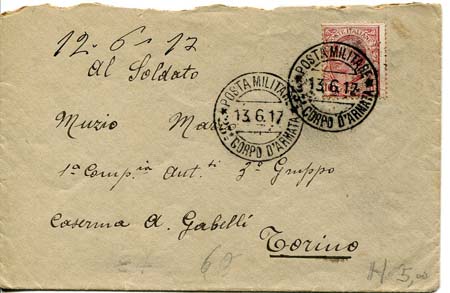 12·6·17
Al Soldato
POSTE ITALIANE
POSTA MILITARE
13.6.17
CORPO D'ARMATA
POSTA MILITARE
13.6.17
CORPO D'ARMATA
Muzio
1ª Comp.ia Aut.ti 3º Gruppo
Caserma A. Gabelli
Torino
H 5,00